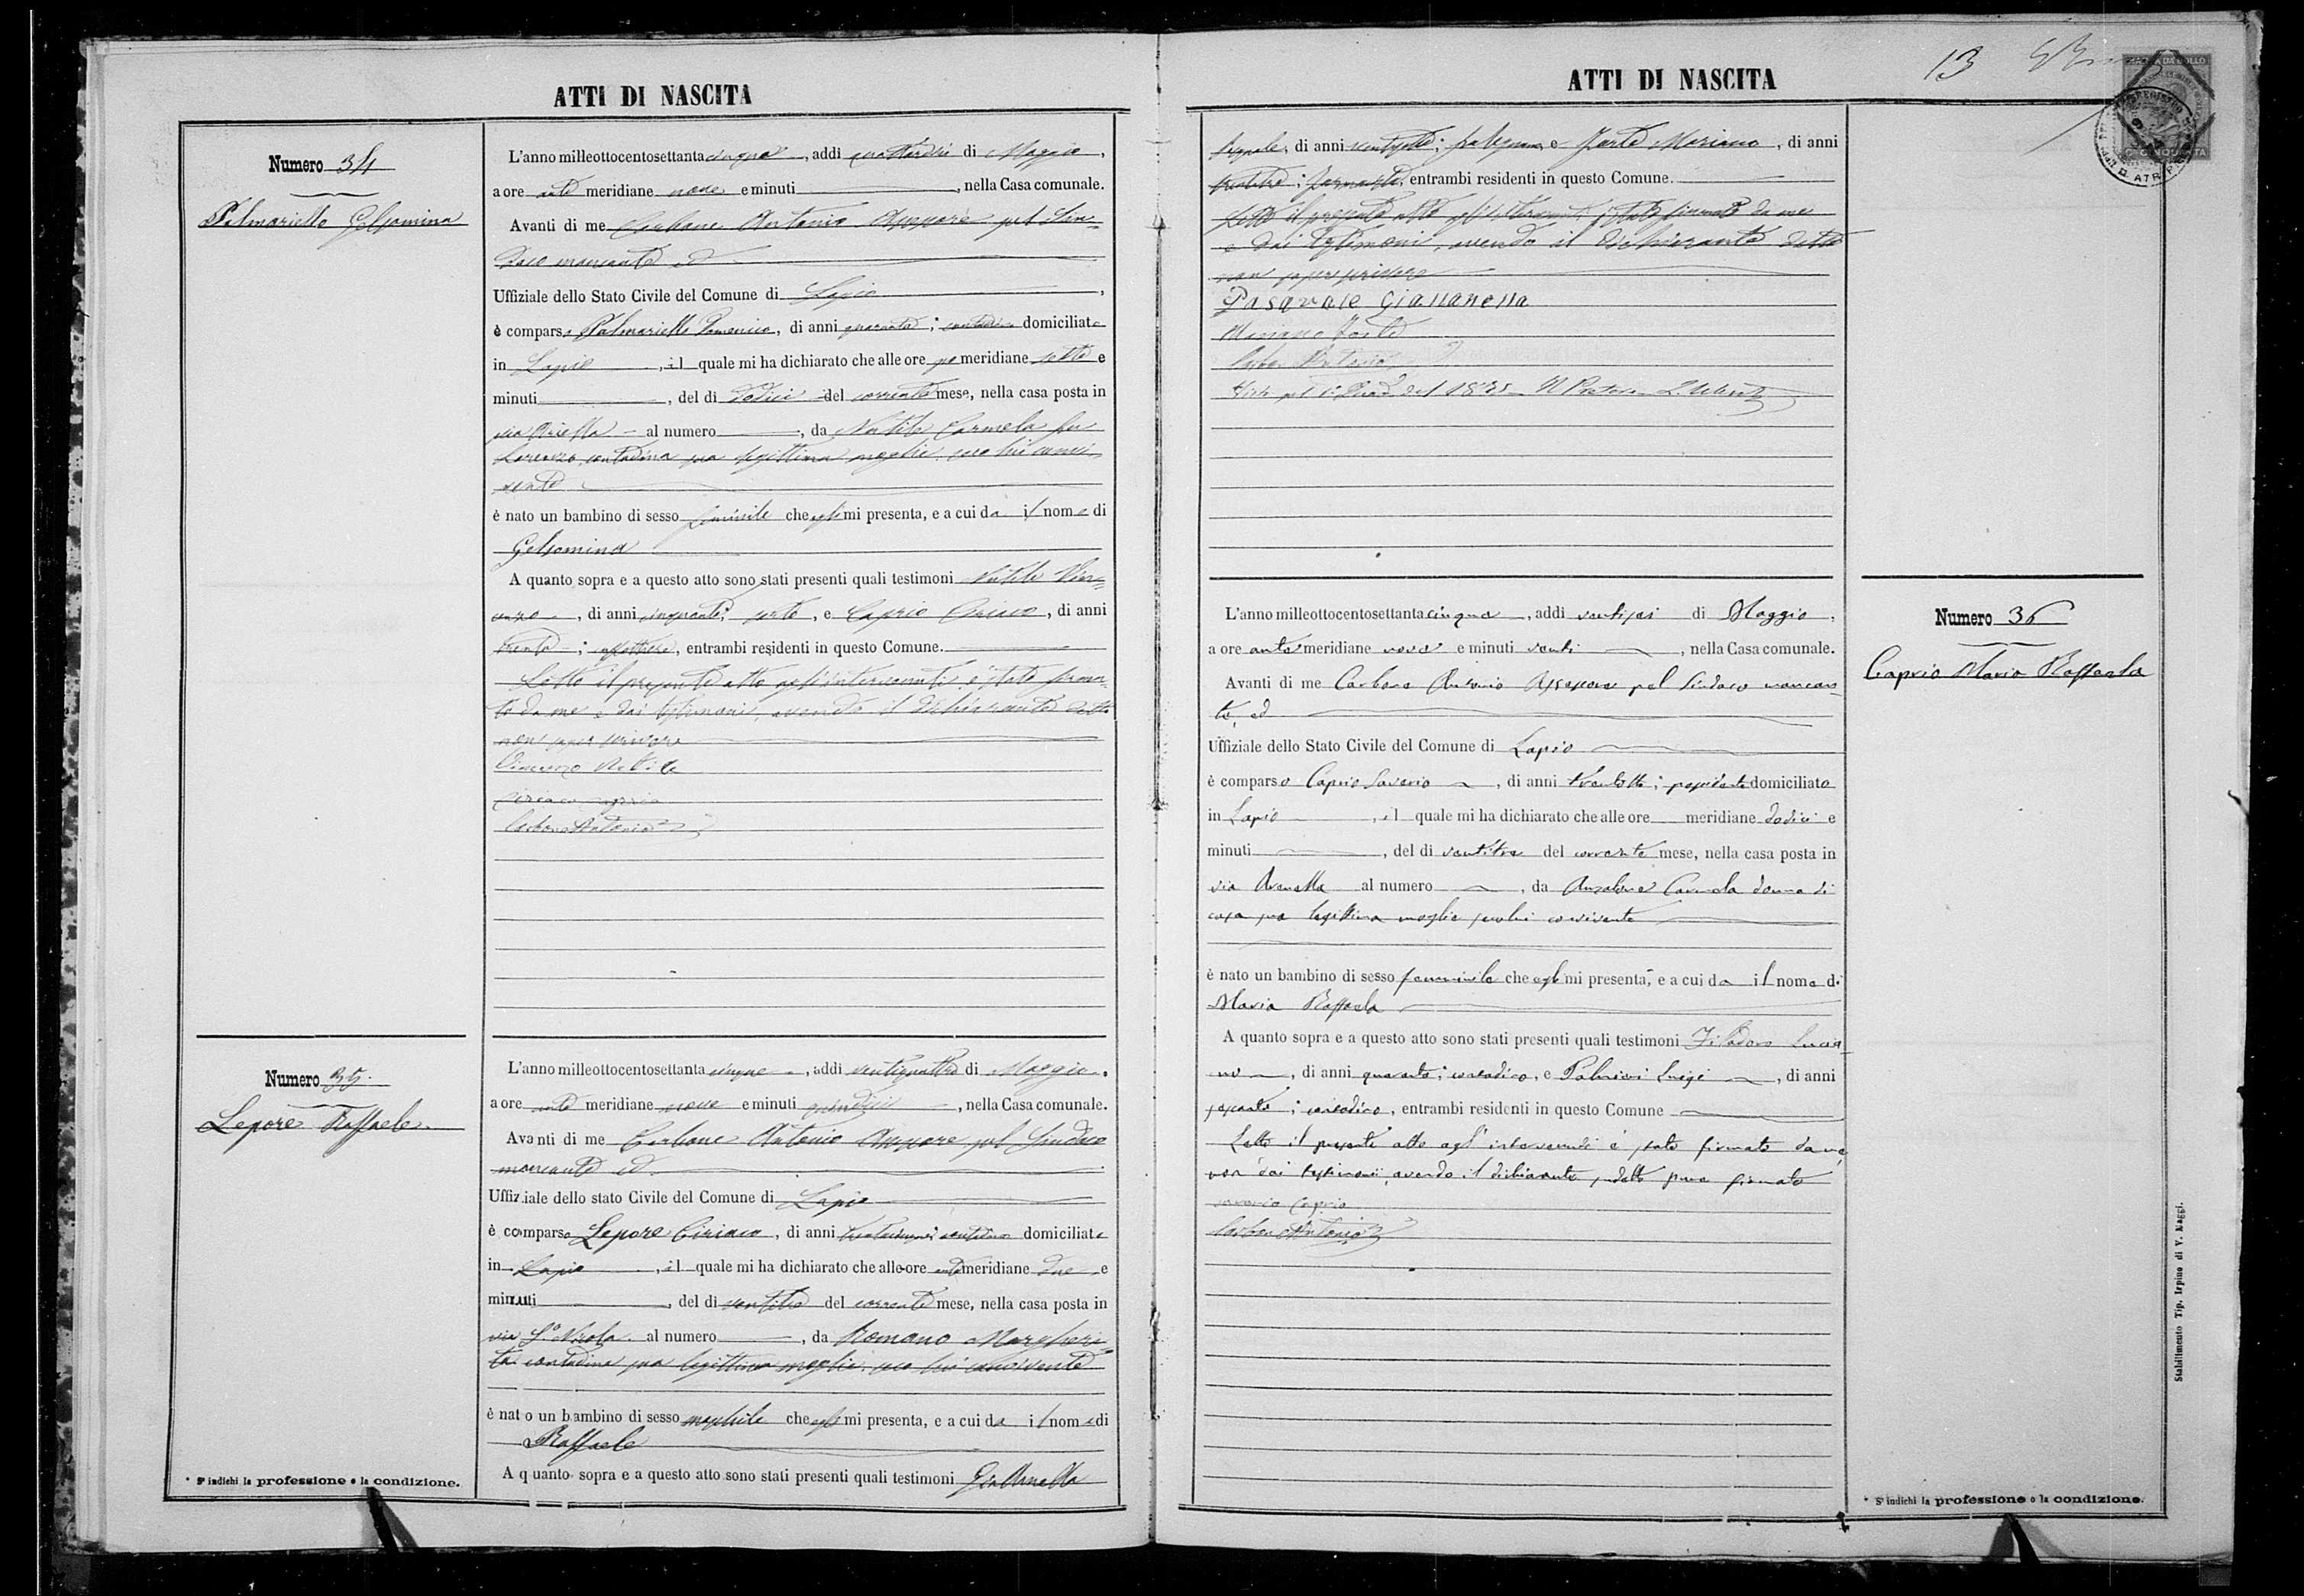 ATTI DI NASCITA
Numero 34
Palmariello Gelsomina
L'anno milleottocentosettanta cinque, addi quattordici di Maggio,
a ore ante meridiane nove e minuti, nella Casa comunale.
Avanti di me Carbone Antonio Assessore pel Sin=
daco mancante ed
Uffiziale dello Stato Civile del Comune di Lapio,
è comparso Palmariello Domenico, di anni quaranta; contadino domiciliato
in Lapio, il quale mi ha dichiarato che alle ore po meridiane sette e
minuti, del di dodici del corrente mese, nella casa posta in
via Ariella al numero, da Nutile Carmela fu
Lorenzo, contadina sua legittima moglie, seco lui convi=
vente
è nato un bambino di sesso feminile che egli mi presenta, e a cui da il nome di
Gelsomina
A quanto sopra e a questo atto sono stati presenti quali testimoni Nutile Vin=
cenzo, di anni cinquanta; sarto, e Caprio Ciriaco, di anni
trenta; , entrambi residenti in questo Comune.
Letto il presente atto agl'intervenuti, è stato firma=
to da me e dai testimoni, avendo il dichiarante detto
non saper scrivere
Vincenzo Nutile
Ciriaco Caprio
Carbone Antonio
Numero 35.
Lepore Raffaele
L'anno milleottocentosettanta cinque, addi ventiquattro di Maggio,
a ore ante meridiane nove e minuti quindici, nella Casa comunale.
Avanti di me Carbone Antonio Assessore pel Sindaco
mancante ed
Uffiziale dello stato Civile del Comune di Lapio
è comparso Lepore Ciriaco, di anni trentacinque; contadino domiciliato
in Lapio, il quale mi ha dichiarato che alle ore antemeridiane due e
minuti, del di ventitre del corrente mese, nella casa posta in
via S. Nicola al numero, da Romano Margheri=
ta contadina sua legittima moglie, seco lui convivente
è nato un bambino di sesso maschile che egli mi presenta, e a cui da il nome di
Raffaele
A quanto sopra e a questo atto sono stati presenti quali testimoni Giallanella
* S'indichi la professione o la condizione.
ATTI DI NASCITA
13
Pasquale, di anni ventisette; falegname e Forte Mariano, di anni
trentatre; , entrambi residenti in questo Comune.
Letto il presente atto agl'intervenuti, è stato firmato da me
e dai testimoni, avendo il dichiarante detto
non saper scrivere
Pasquale Giallanella
Mariano Forte
Carbone Antonio
Visto pel 1875 Il Pretore
L'anno milleottocentosettanta cinque, addi ventisei di Maggio,
a ore ante meridiane nove e minuti venti, nella Casa comunale.
Avanti di me Carbone Antonio Assessore pel Sindaco mancan=
te, ed
Uffiziale dello Stato Civile del Comune di Lapio
è comparso Caprio Saverio, di anni trentotto; possidente domiciliato
in Lapio, il quale mi ha dichiarato che alle ore meridiane dodici e
minuti, del di ventitre del corrente mese, nella casa posta in
via Avenella al numero, da Anzalone Carmela donna di
casa sua legittima moglie seco lui convivente
è nato un bambino di sesso femminile che egli mi presenta, e a cui da il nome di
Maria Raffaela
A quanto sopra e a questo atto sono stati presenti quali testimoni Filadoro Lucia=
no, di anni quaranta; contadino, e Palmieri Luigi, di anni
sessanta; contadino, entrambi residenti in questo Comune
Letto il presente atto agl'intervenuti è stato firmato da me,
non dai testimoni, avendo il dichiarante, pure firmato
Saverio Caprio
Carbone Antonio
Numero 36
Caprio Maria Raffaela
* S'indichi la professione o la condizione.
Stabilimento Tip. Irpino di V. Maggi.